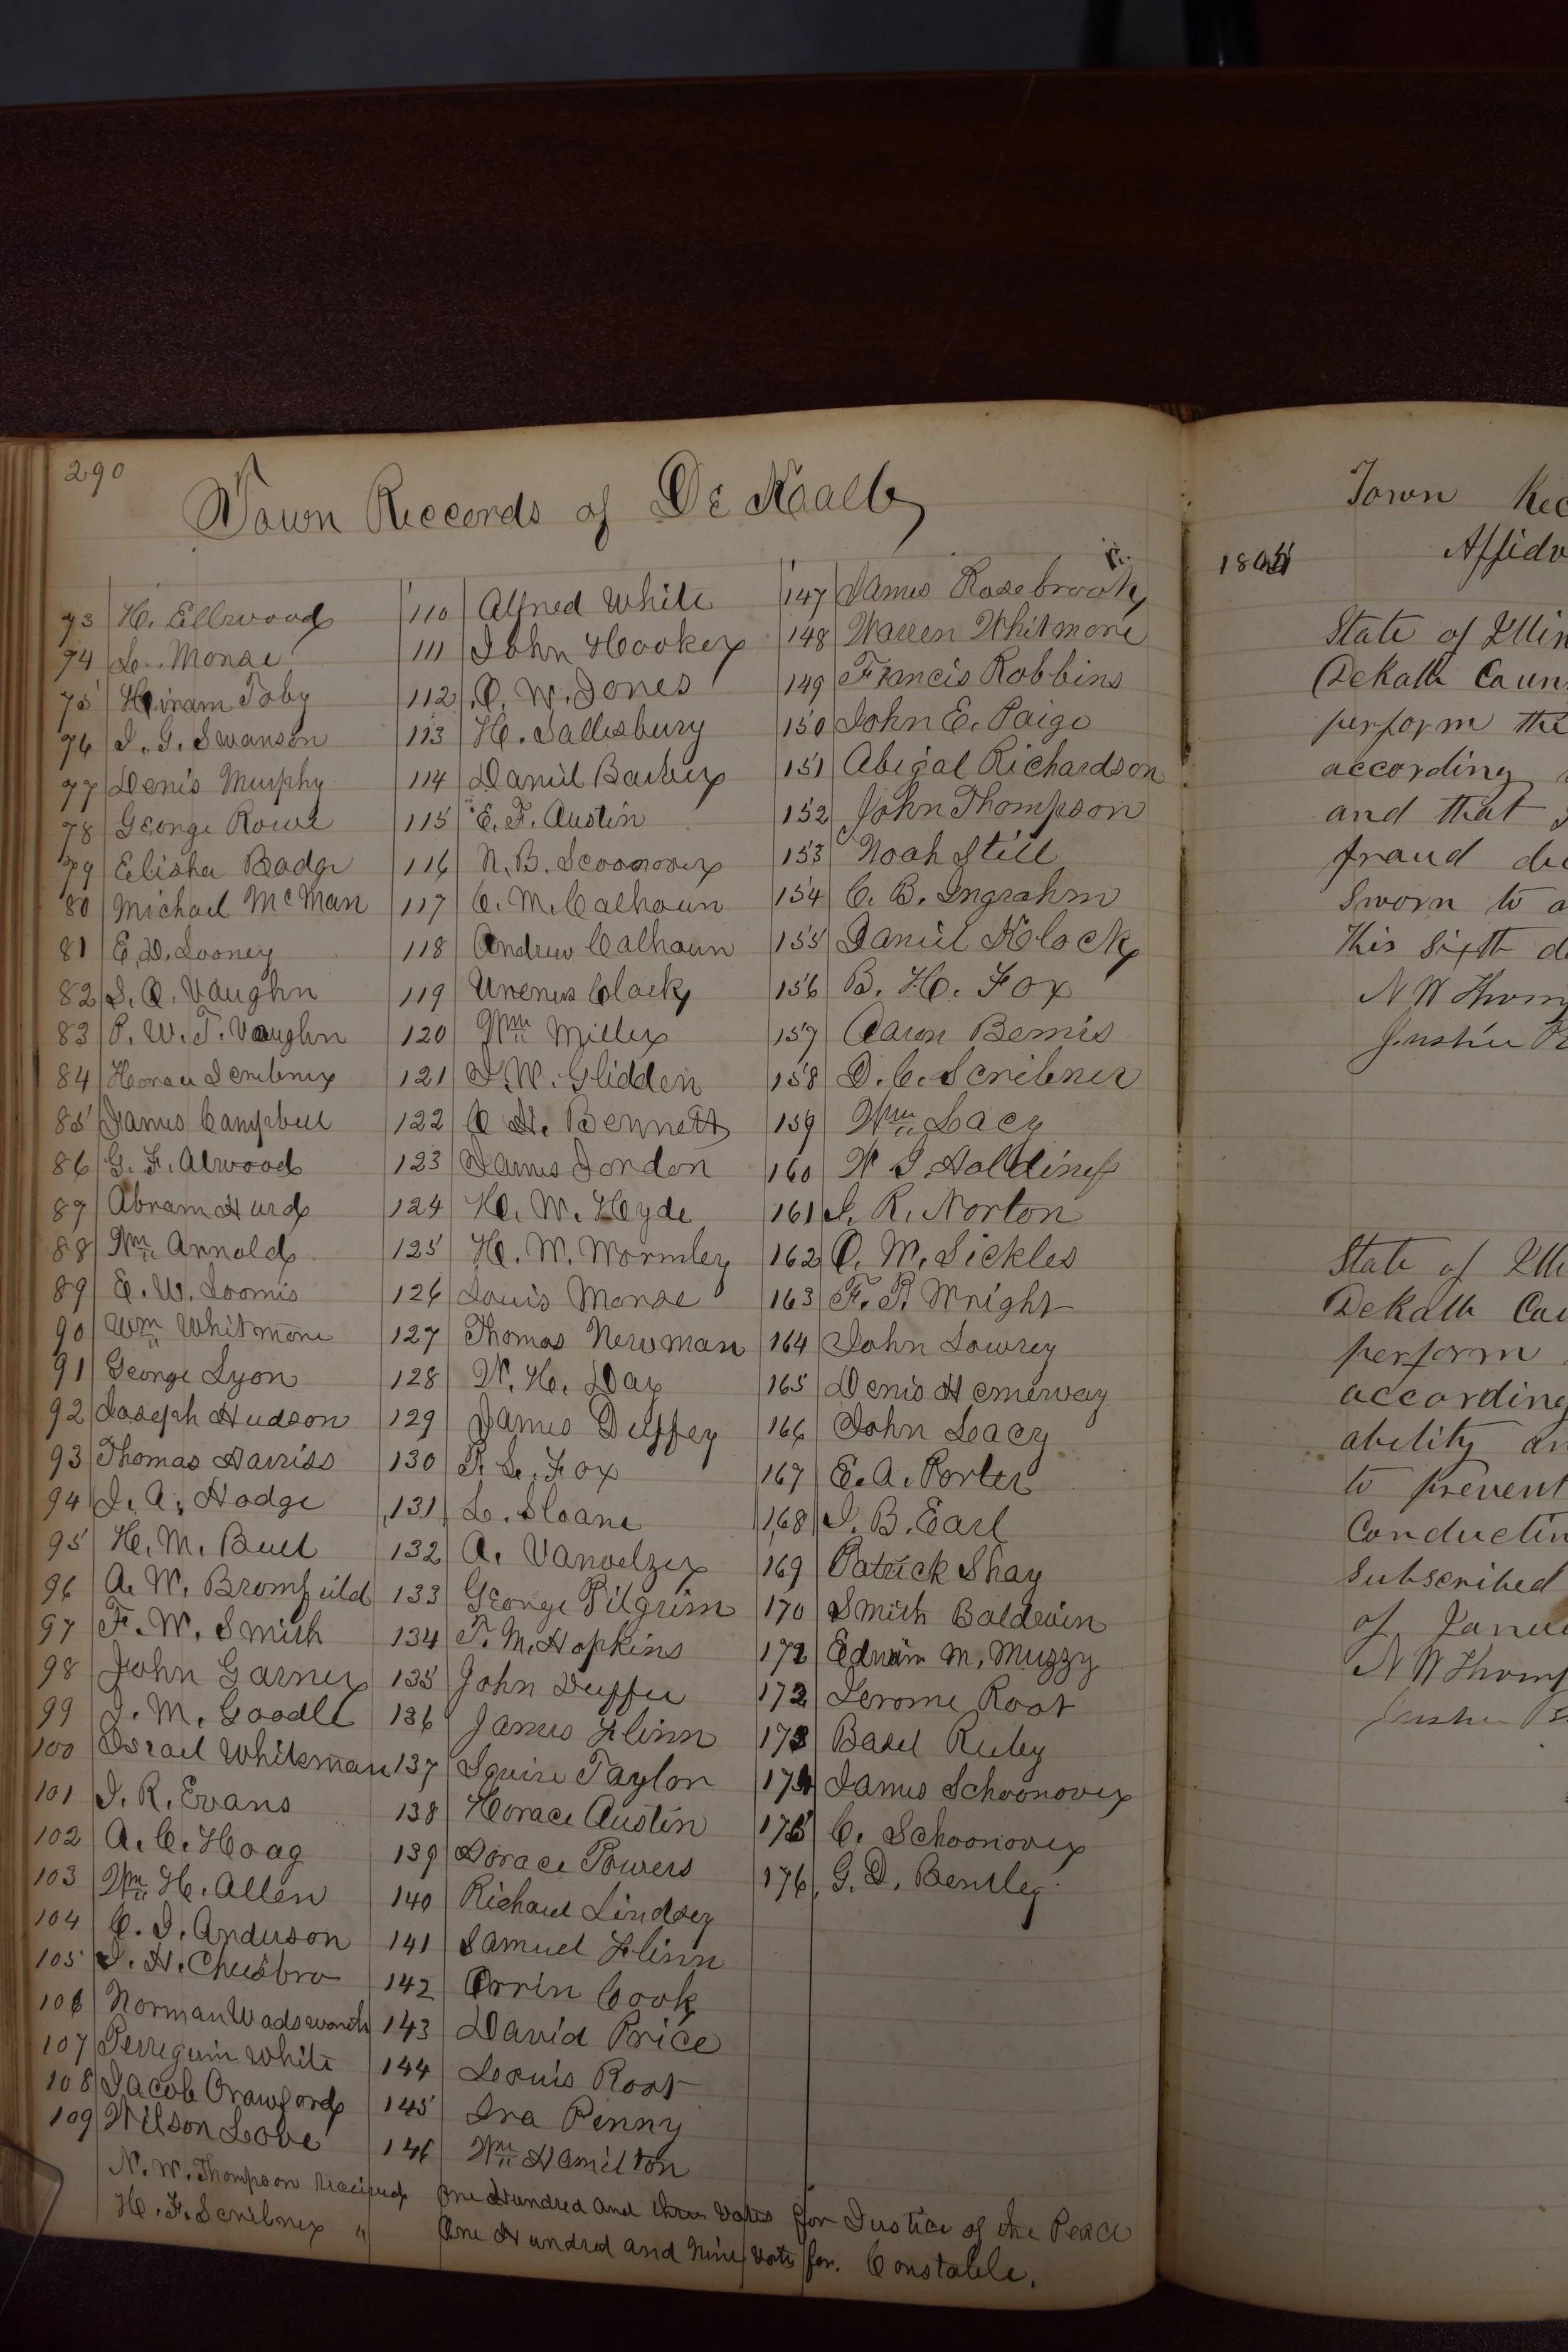 290
Town Records of De Kalb
73 H. Ellwood
74 L. Morse
75 Hiram Toby
76 J. G. Swanson
77 Denis Murphy
78 George Rowe
79 Elisha Badge
80 Michael McMan
81 E. D. Looney
82 S. A. Vaughn
83 P. W. T. Vaughn
84 Horace Scribner
85 James Campbell
86 G. F. Atwood
87 Abram Hurd
88 Wm Arnold
89 E. W. Loomis
90 Wm Whitmore
91 George Lyon
92 Joseph Hudson
93 Thomas Harriss
94 J. A. Hodge
95 H. M. Buel
96 A. W. Bromfield
97 F. W. Smith
98 John Garner
99 J. M. Goodle
100 Israel Whiteman
101 J. R. Evans
102 A. C. Hoag
103 Wm H. Allen
104 C. J. Anderson
105 J. H. Cheesbro
106 Norman Wadsworth
107 Perreguin White
108 Jacob Crawford
109 Wilson Love
110 Alfred White
111 John Hooker
112 O. W. Jones
113 H. Sallesbury
114 Daniel Barber
115 E. F. Austin
116 N. B. Scoonover
117 C. M. Calhoun
118 Andrew Calhoun
119 Urenus Clack
120 Wm Miller
121 J. W. Glidden
122 C H. Bennett
123 James Jordon
124 H. W. Hyde
125 H. W. Wormley
126 Louis Morse
127 Thomas Newman
128 W. H. Day
129 James Duffey
130 P. L. Fox
131 L. Sloane
132 A. Vanvelzer
133 George Pilgrim
134 T. M. Hopkins
135 John Duffee
136 James Flinn
137 Squire Taylor
138 Horace Austin
139 Dorace Powers
140 Richard Lindsey
141 Samuel Flinn
142 Orrin Cook
143 David Price
144 Lewis Root
145 Ira Penny
146 Wm Hamilton
147 James Rosebrook
148 Warren Whitmore
149 Francis Robbins
150 John E. Paige
151 Abigal Richardson
152 John Thompson
153 Noah Still
154 C. B. Ingrahm
155 Daniel Klock
156 B. H. Fox
157 Aaron Bemis
158 D. C. Scribner
159 Wm Lacy
160 W J Holdiness
161 J. R. Norton
162 O. W. Sickles
163 F. P. Wright
164 John Lowrey
165 Denis Hemerway
166 John Leacy
167 E. A. Porter
168 J. B. Earl
169 Patrick Shay
170 Smith Baldwin
171 Edwin M. Muzzy
172 Jerome Root
173 Basel Ruby
174 James Schoonover
175 C. Schoonover
176 G. D. Bentley
N. W. Thompson Received One Hundred and three votes for Justice of the Peace
H. F. Scribner " One Hundred and Nine votes for. Constable.
Town Rec
Affidv
State of Illin
Dekalb Coun
perform the
according
and that
fraud de
Sworn to a
this sixth d
N W Thom
State of Illi
Dekalb Cou
perform
according
ability an
to prevent
Conductin
Subscribed
of Janua
N W Thomp